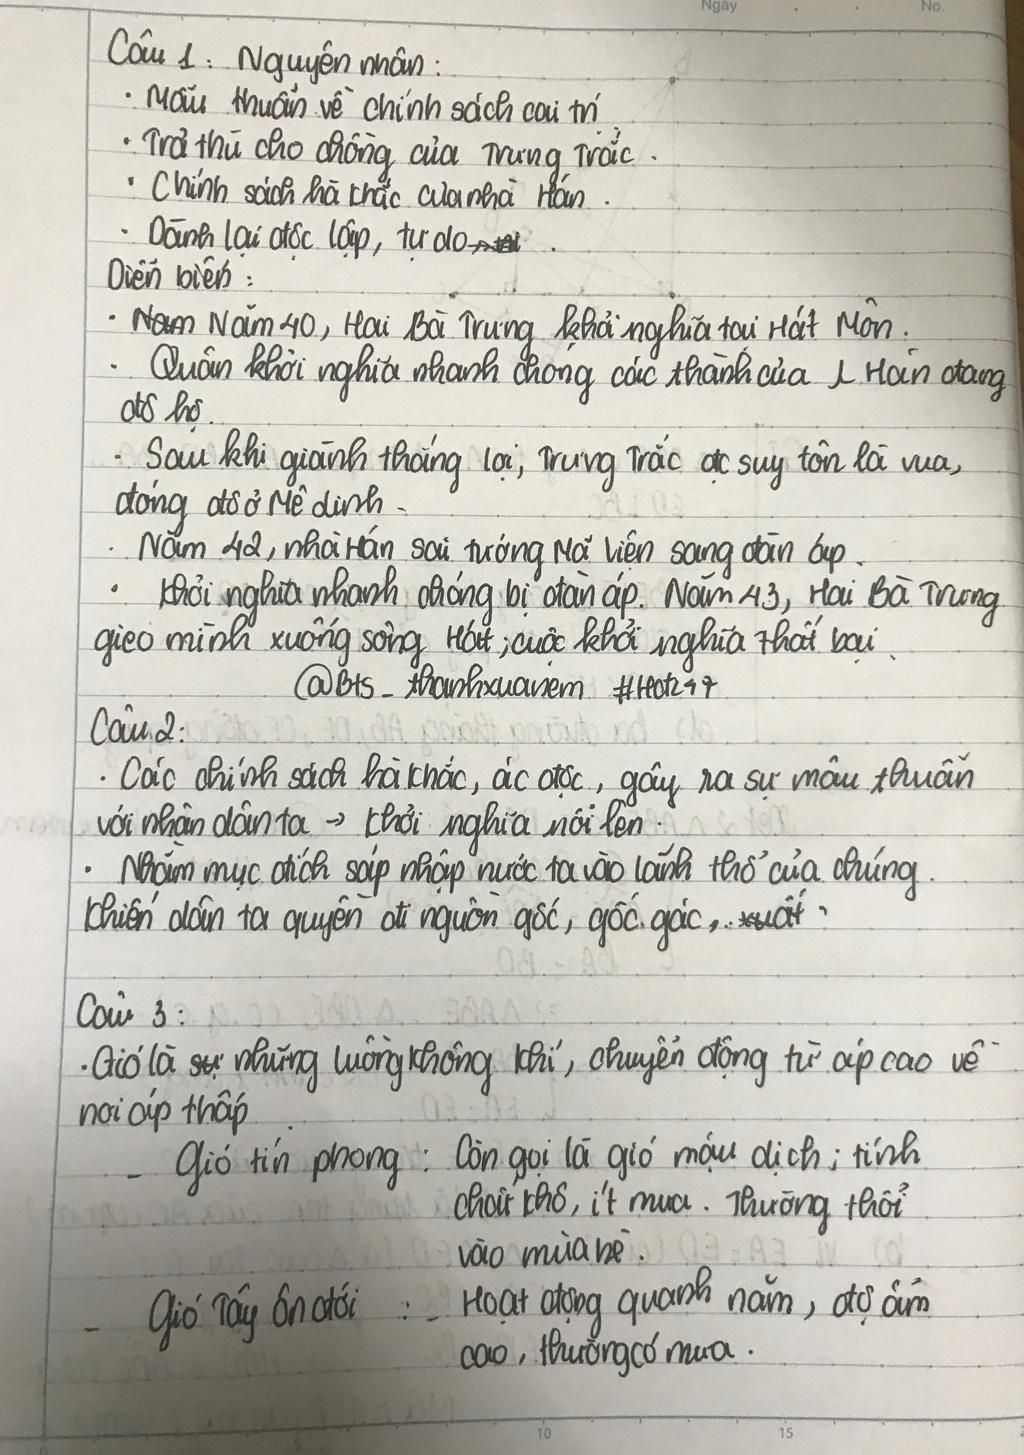 Ngày No.
Câu 1: Nguyên nhân:
· Mâu thuẫn về chính sách cai trị
· Trả thù cho chồng của Trưng Trắc.
· Chính sách hà khắc của nhà Hán.
· Dành lại độc lập, tự do .
Diễn biến:
· Năm 40, Hai Bà Trưng khởi nghĩa tại Hát Môn.
· Quân khởi nghĩa nhanh chóng các thành của Hán đang
đô hộ.
· Sau khi giành thắng lợi, Trưng Trắc đc suy tôn là vua,
đóng đô ở Mê dinh.
· Năm 42, nhà Hán sai tướng Mã Viện sang đàn áp.
· Khởi nghĩa nhanh chóng bị đàn áp. Năm 43, Hai Bà Trưng
gieo mình xuống sông Hát; cuộc khởi nghĩa thất bại.
@Bts_thanhxuanem
Câu 2:
· Các chính sách hà khắc, ác độc, gây ra sự mâu thuẫn
với nhân dân ta → khởi nghĩa nổi lên.
· Nhằm mục đích sáp nhập nước ta vào lãnh thổ của chúng.
khiến dân ta quyền đi nguồn gốc, gốc gác,
Câu 3:
· Gió là những luồng không khí, chuyển động từ áp cao về
nơi áp thấp
_ Gió tín phong: Còn gọi là gió mậu dịch; tính
chất khô, ít mưa. Thường thổi
vào mùa hè.
_ Gió Tây ôn đới : _ Hoạt động quanh năm, độ ẩm
cao, thường có mưa.
10 15